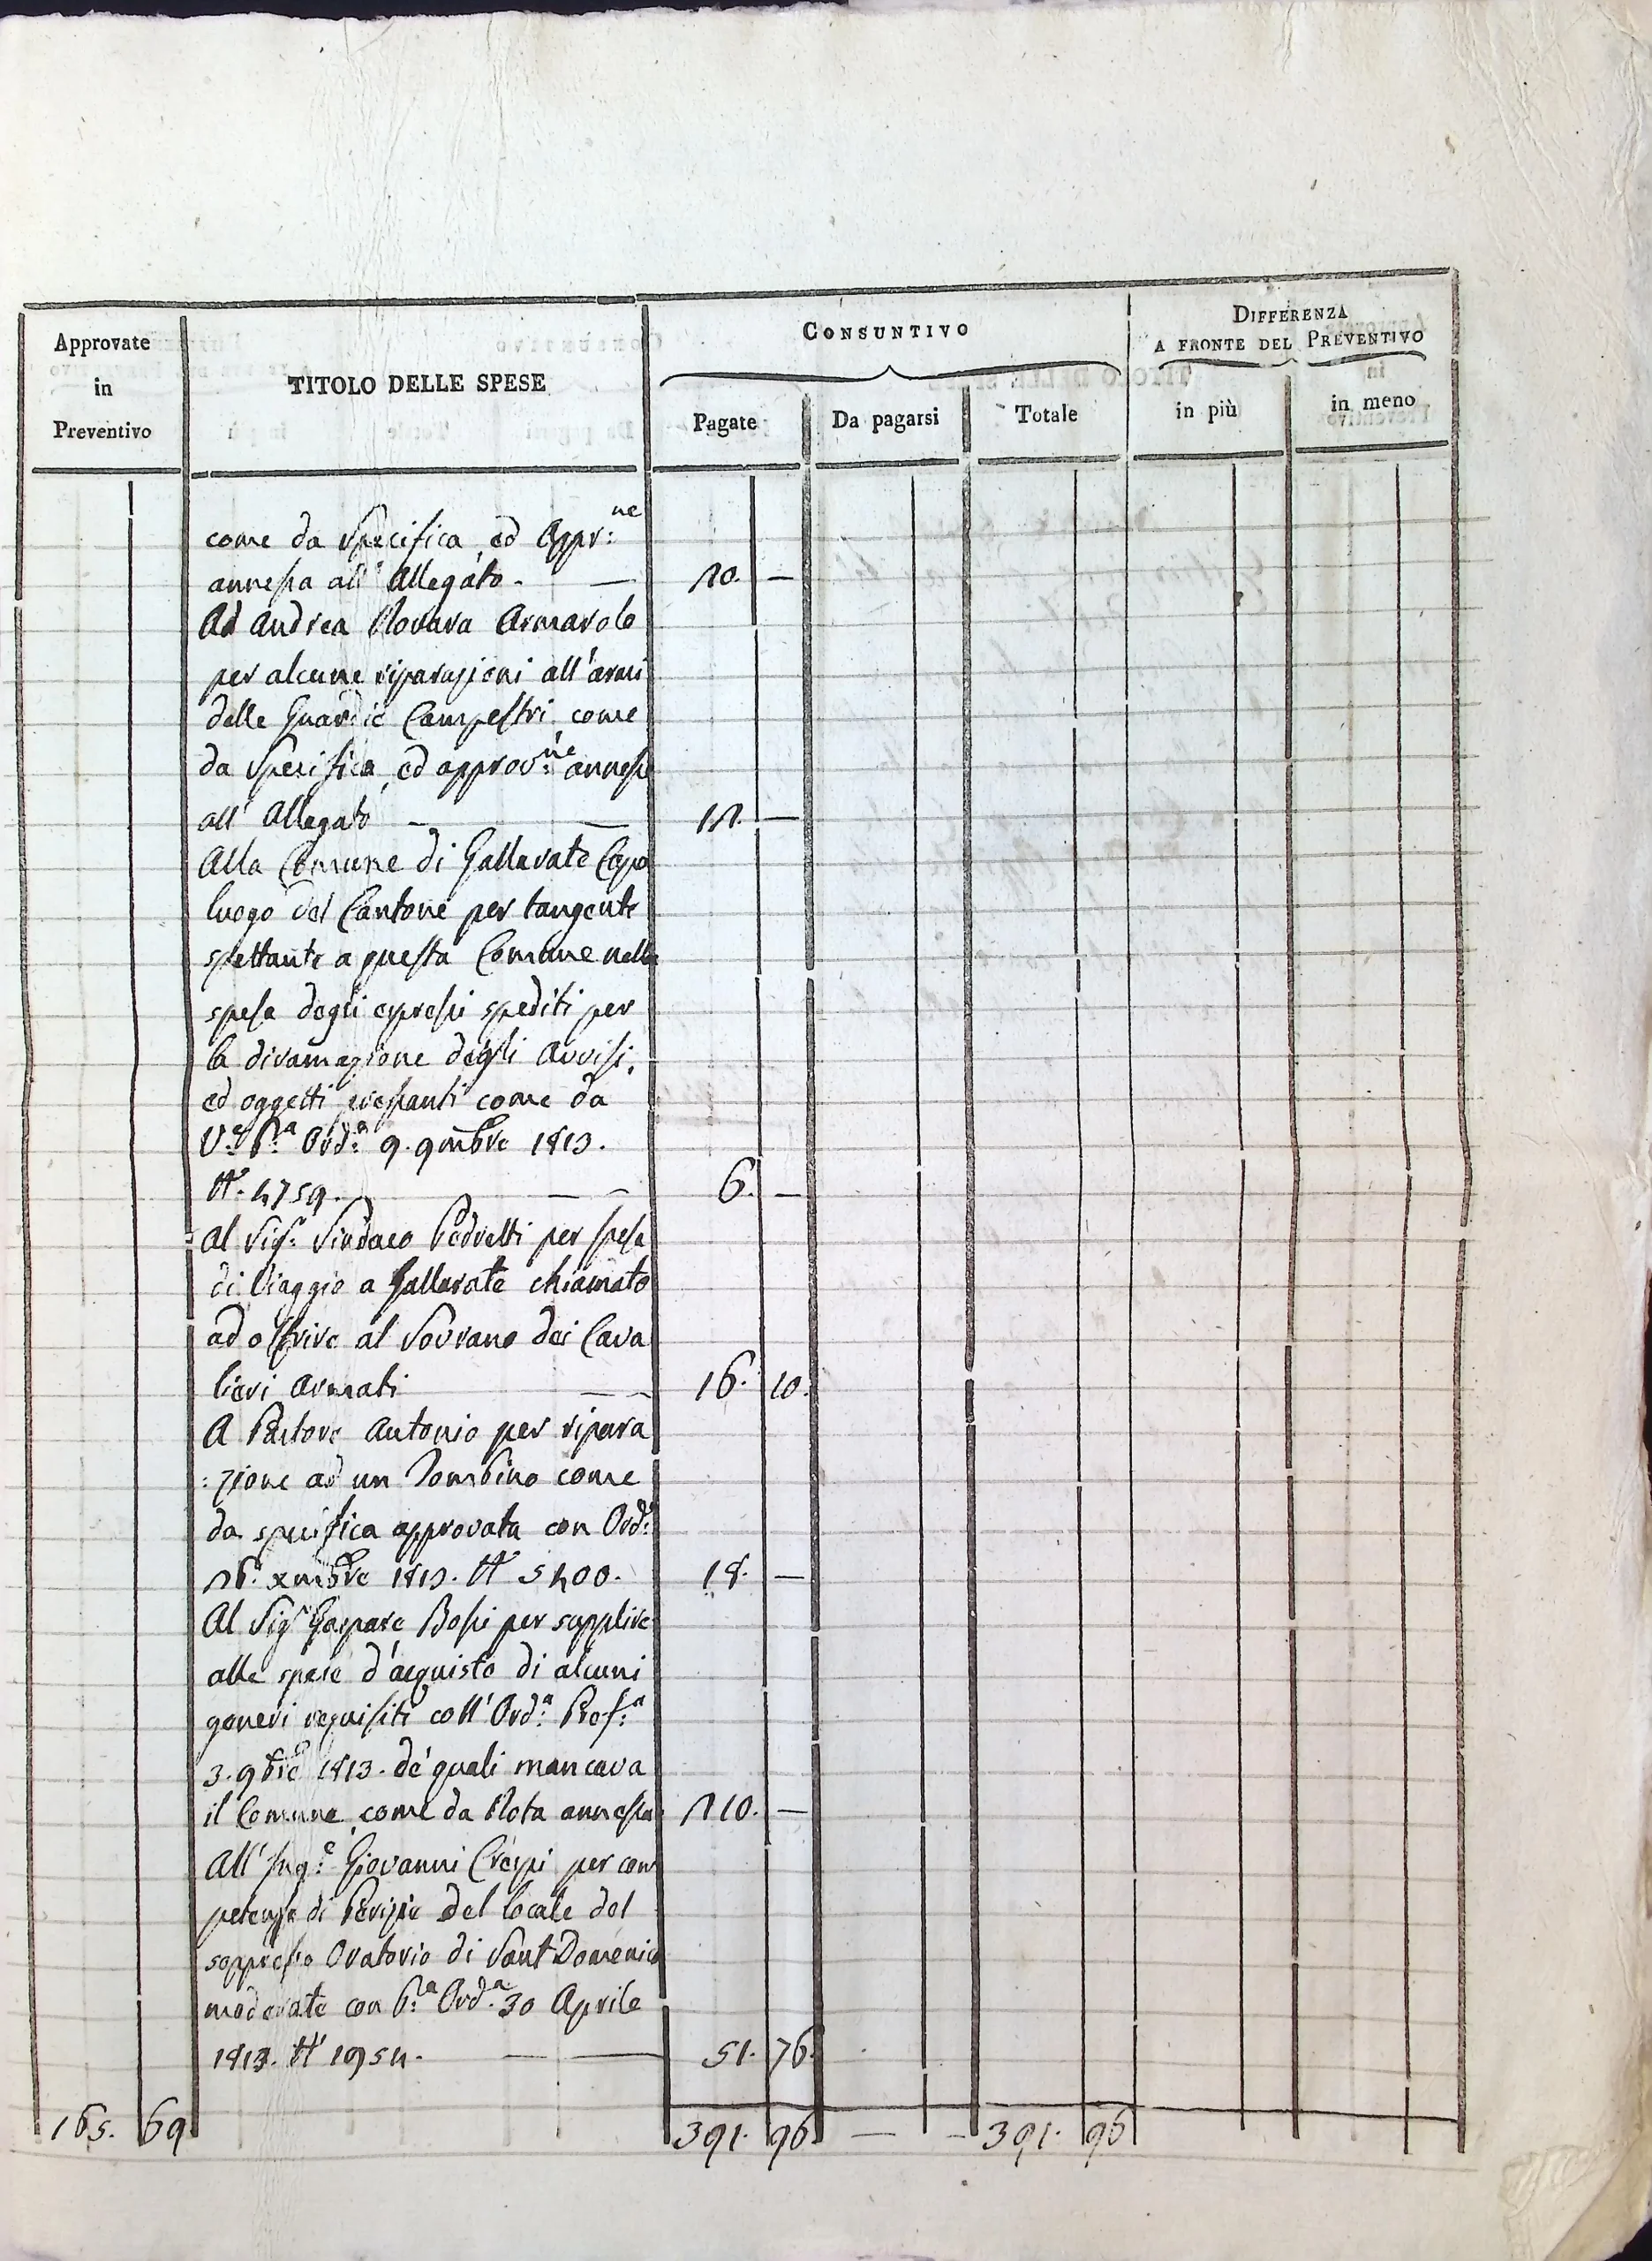 Approvate in Preventivo
TITOLO DELLE SPESE
CONSUNTIVO
DIFFERENZA
A FRONTE DEL PREVENTIVO
Pagate
Da pagarsi
Totale
in più
in meno
come da Specifica, ed Appr:ne
annessa all' Allegato - — 20. —
Ad Andrea Novara Armarolo
per alcune riparazioni all'armi
delle Guardie Campestri, come
da Specifica, ed approv:ne annesse
all' Allegato — — 12. —
Alla Comune di Gallarate Capo
luogo del Cantone per tangente
spettante a questa Comune nella
spesa degli espressi spediti per
la diramazione degli Avvisi,
ed oggetti pressanti come da
V.e P.a Ord:a 9. 9mbre 1813.
N. 4759. — — 6. —
Al Sig.r Sindaco Pedretti per spesa
di Viaggio a Gallarate chiamato
ad offrire al Sovrano dei Cava
lieri Armati — — 16. 10.
A Pastore Antonio per ripara
:zione ad un Tombino come
da specifica approvata con Ord:a
26. Xmbre 1813. N 5400. 18. —
Al Sig.r Gaspare Bossi per supplire
alle spese d'acquisto di alcuni
generi requisiti coll' Ord:a Pref:a
3. 9bre 1813. de' quali mancava
il Comune, come da Nota annessa 210. —
All' Ing:e Giovanni Crespi per com
petenze di Perizie del locale del
soppresso Oratorio di Sant Domenico
moderate con P:a Ord:a 30 Aprile
1813. N 1954. — — 51. 76.
165. 69 391. 96. — — 391. 96